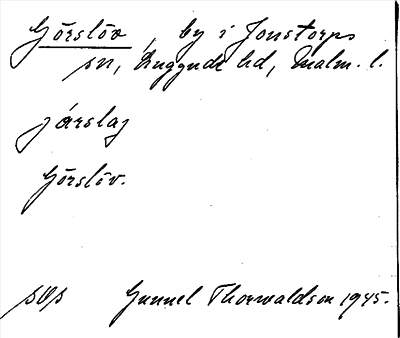 Görslöv, by i Jonstorps
sn, Luggude hd, Malm. l.
järslaj
Görslöv.
Gunnel Thorwaldson 1945.